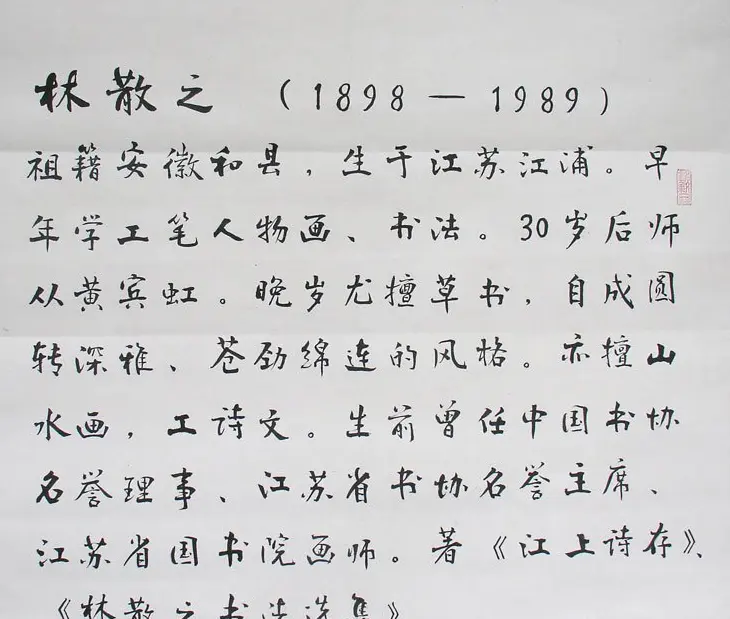 林散之 （1898 — 1989）
祖籍安徽和县，生于江苏江浦。早
年学工笔人物画、书法。30岁后师
从黄宾虹。晚岁尤擅草书，自成圆
转深雅、苍劲绵连的风格。亦擅山
水画，工诗文。生前曾任中国书协
名誉理事、江苏省书协名誉主席、
江苏省国书院画师。著《江上诗存》、
《林散之书法选集》